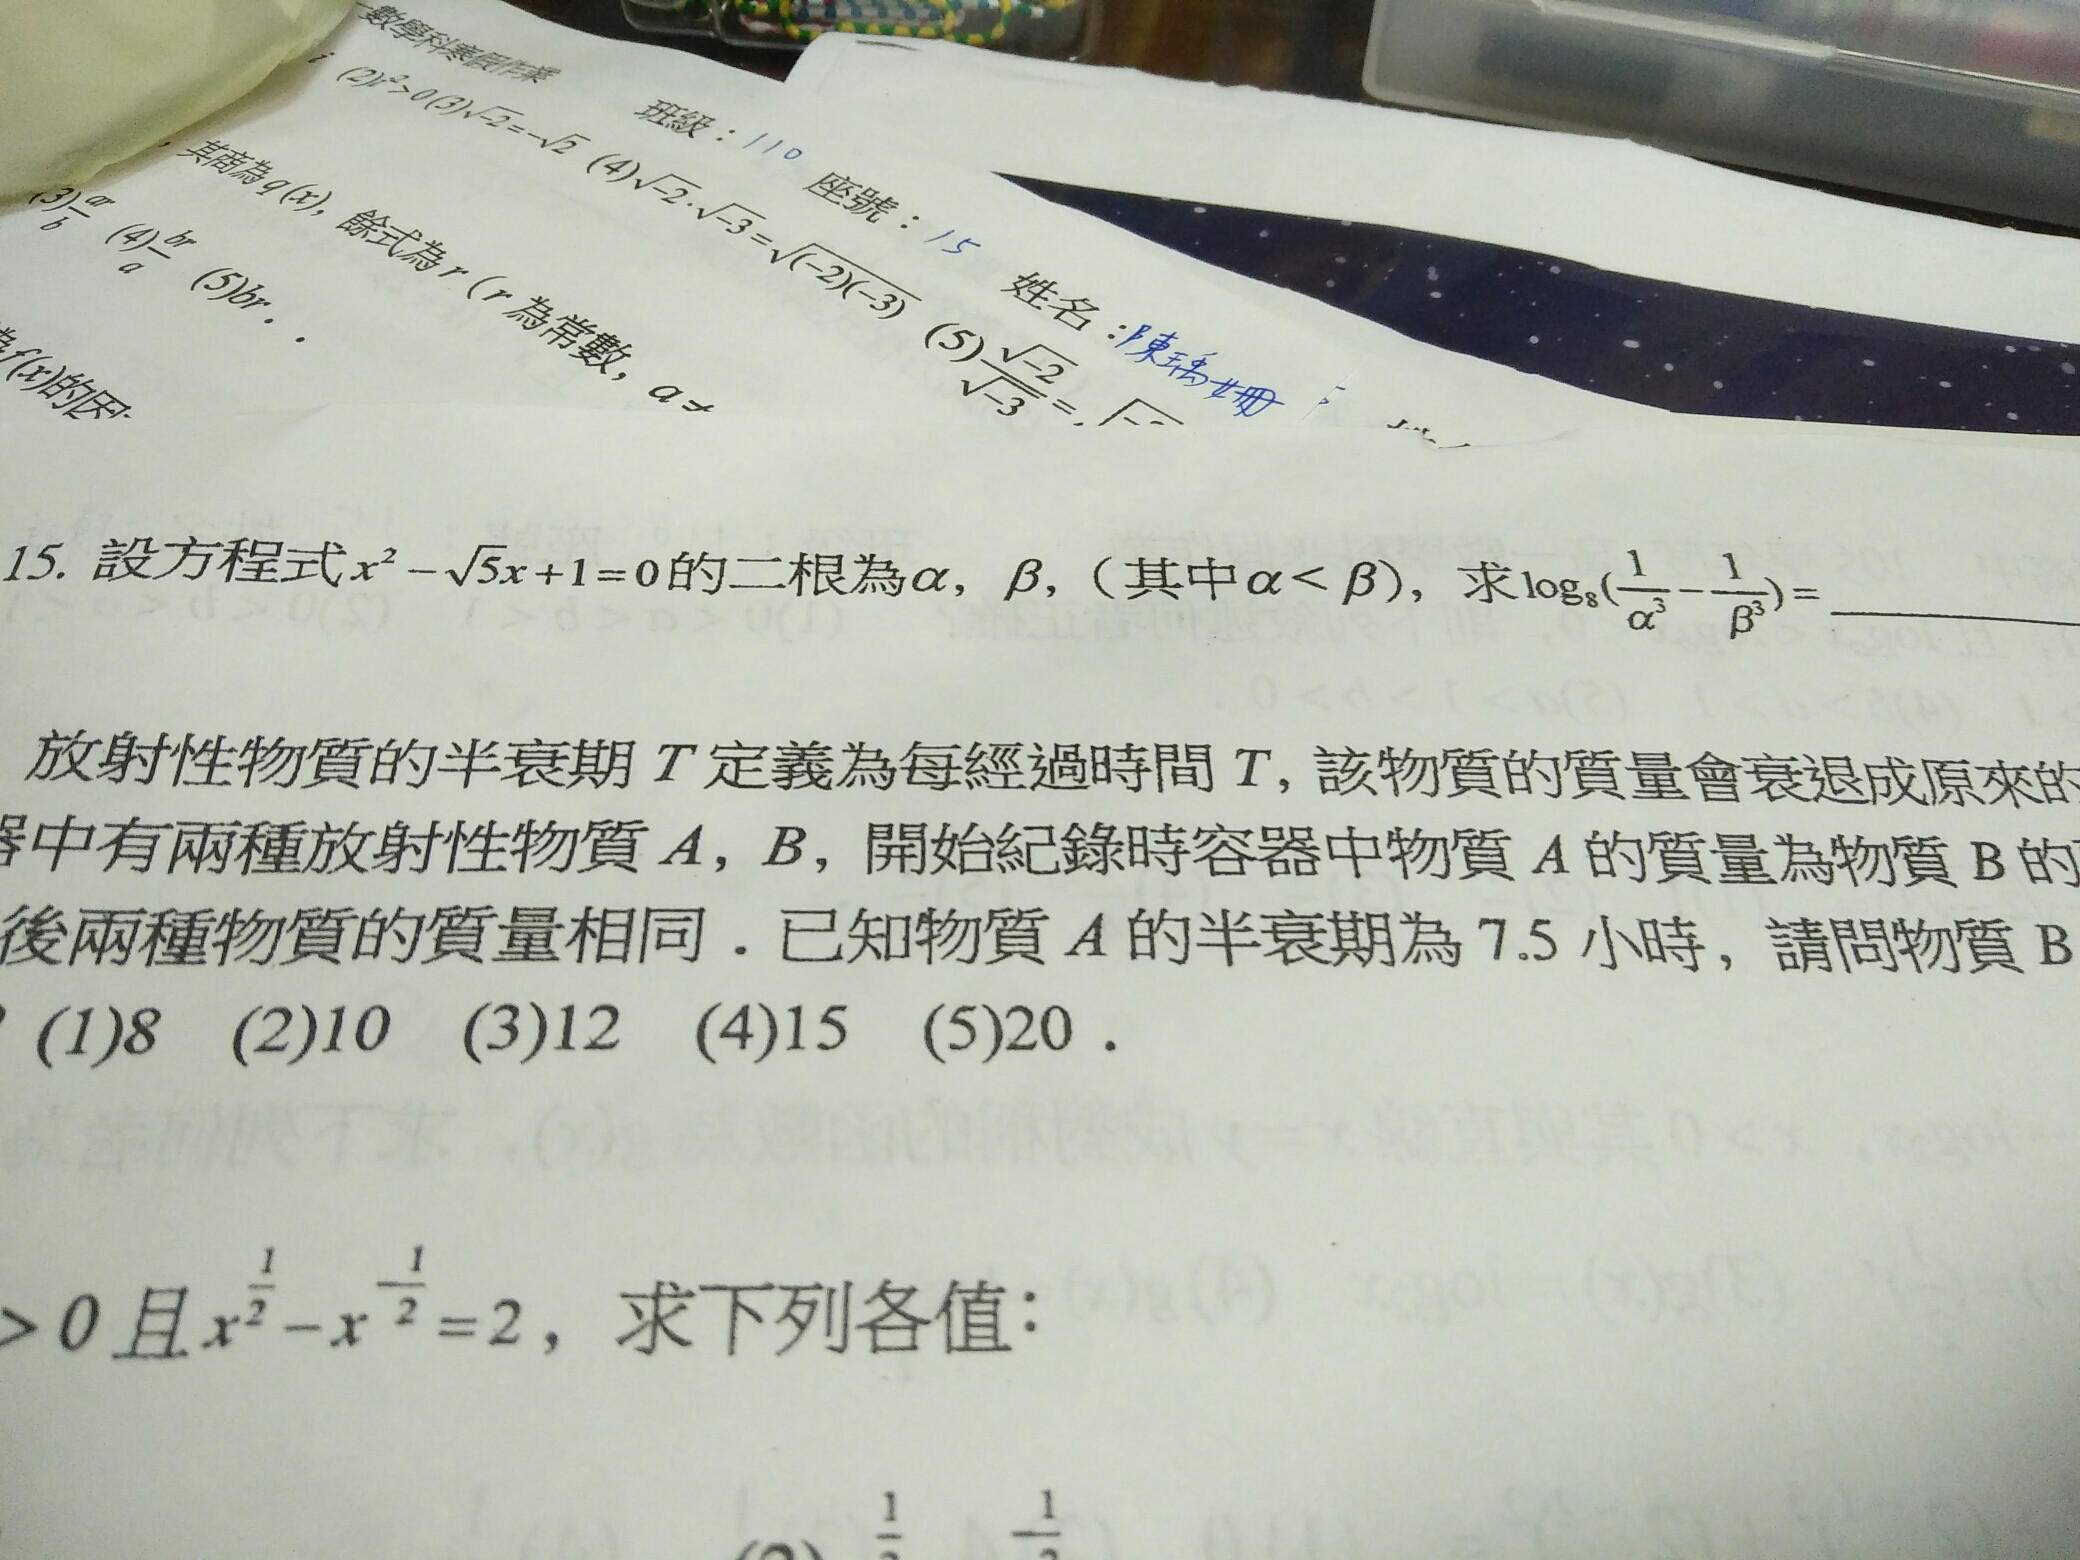 數學科寒假作業 班級：110 座號：15 姓名：陳瑀姍
(2)i²>0 (3)√-2=-√2 (4)√-2·√-3=√(-2)(-3) (5)√-2/√-3=
其商為q(x)，餘式為r（r為常數，a≠
(3)ar/b (4)br/a (5)br．
f(x)的因
15. 設方程式x²-√5x+1=0的二根為α，β，（其中α<β），求log₈(1/α³-1/β³)=______
放射性物質的半衰期T定義為每經過時間T，該物質的質量會衰退成原來的
器中有兩種放射性物質A，B，開始紀錄時容器中物質A的質量為物質B的
後兩種物質的質量相同．已知物質A的半衰期為7.5小時，請問物質B
(1)8 (2)10 (3)12 (4)15 (5)20．
>0且x^(1/2)-x^(-1/2)=2，求下列各值：